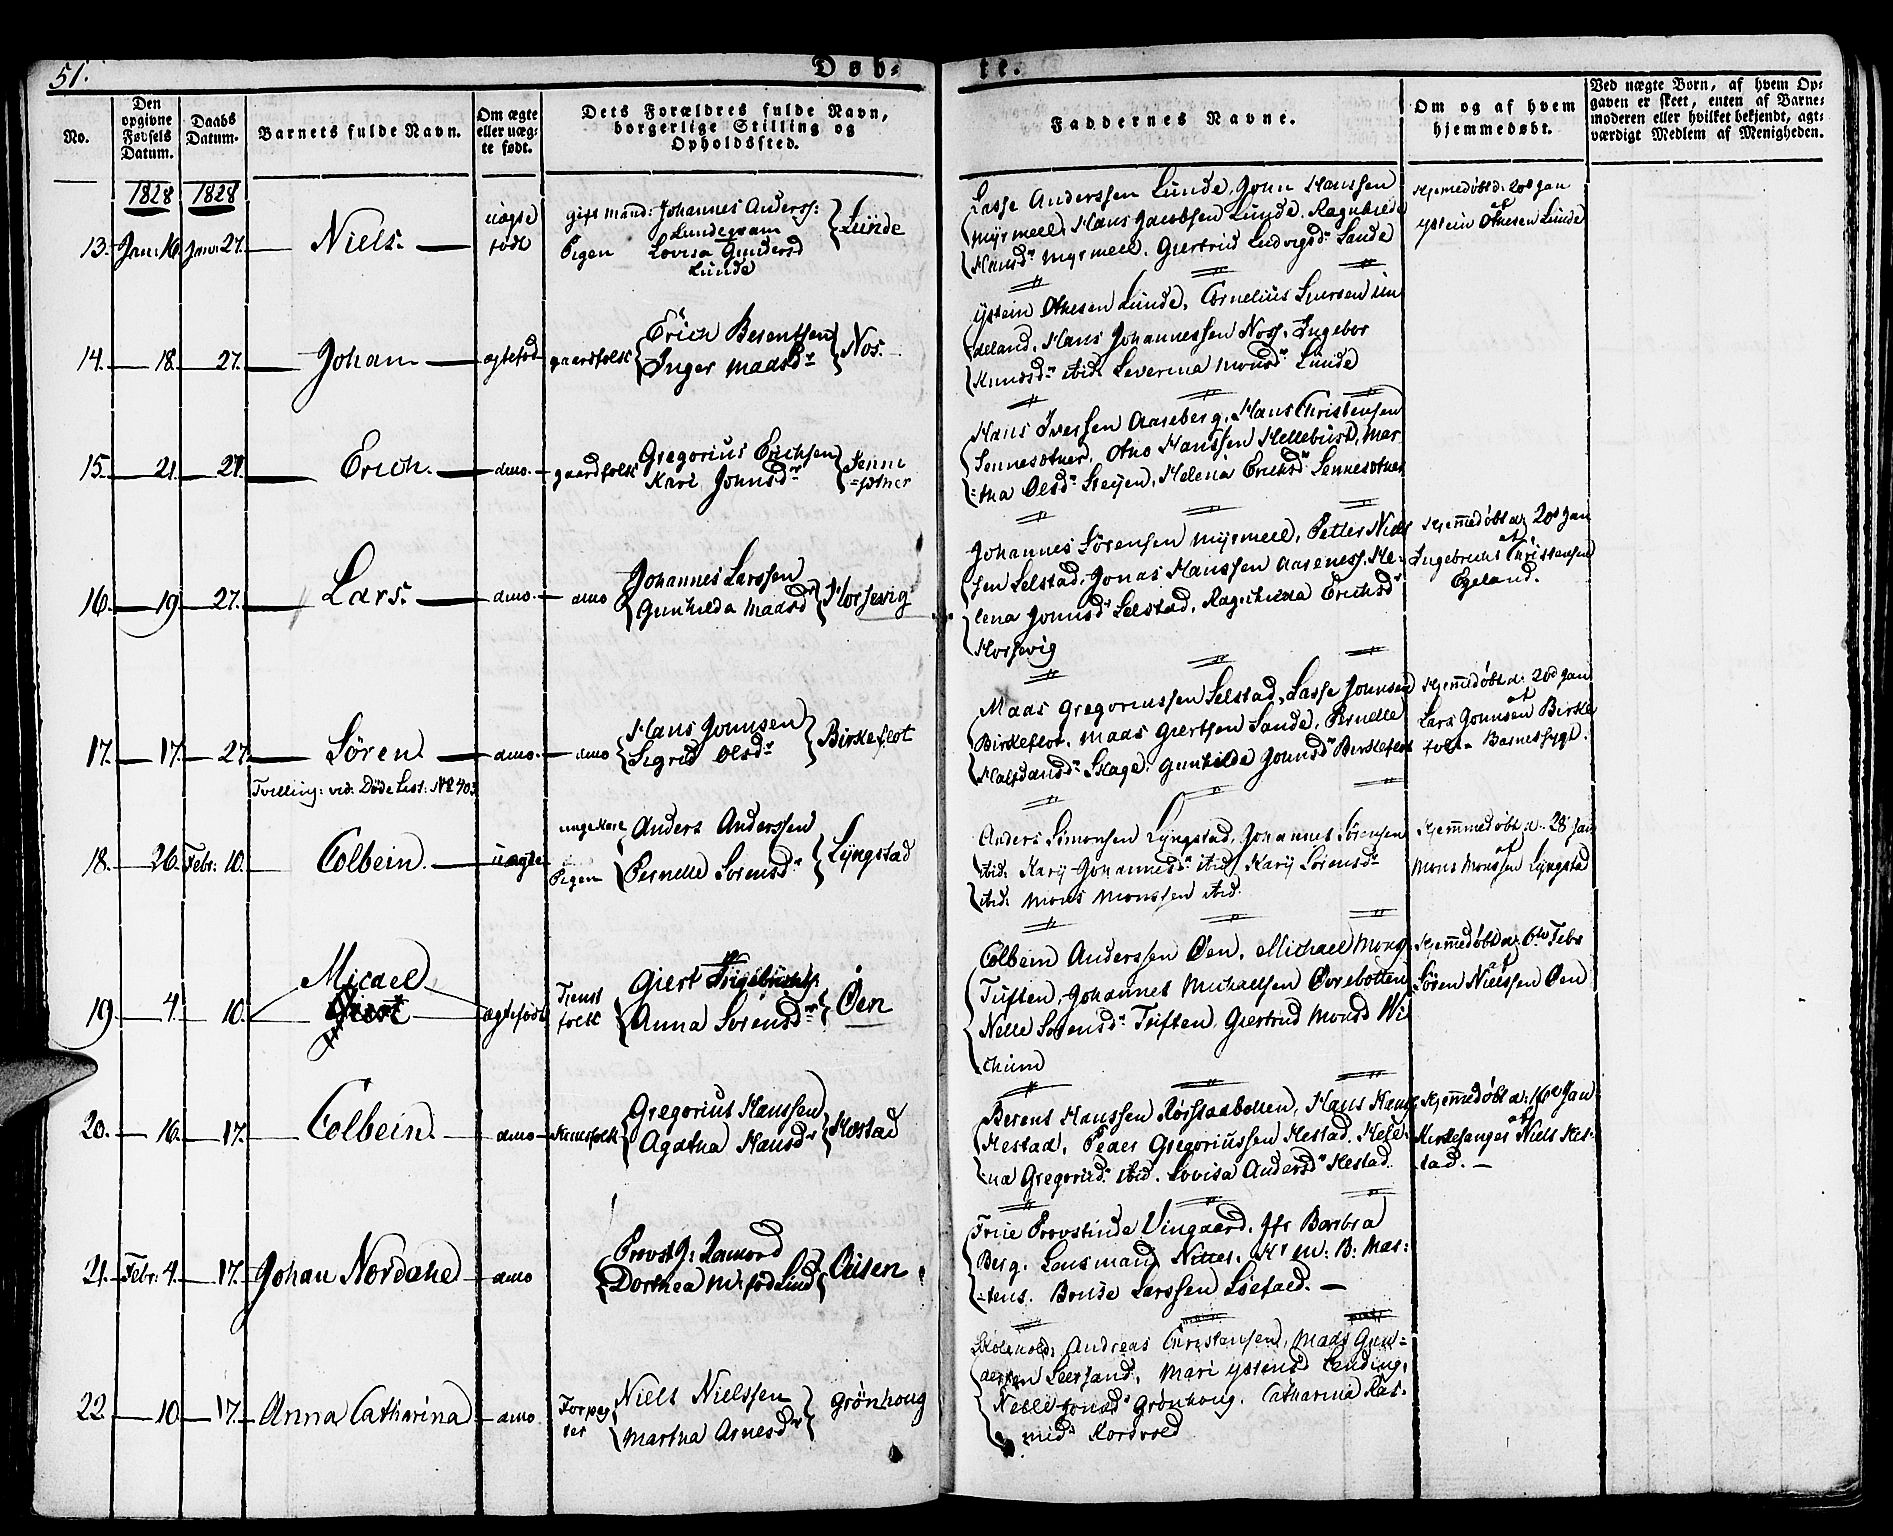 51.
Døb-
te.
No.
Den opgivne Fødsels Datum.
Daabs Datum.
Barnets fulde Navn.
Om ægte eller uæg-te født.
Dets Forældres fulde Navn, borgerlige Stilling og Opholdssted.
Faddernes Navne.
Om og af hvem hjemmedøbt.
Ved uægte Børn, af hvem Op-
gaven er skeet, enten af Barne-
moderen eller hvilket bekjendt, agt-
værdigt Medlem af Menigheden.
1828 1828
13. Jan: 16. Janu: 27. Niels. uægte født
gift mand: Johannes Anderss:
Pigen Lovisa Gundersd
Lunde
Lunde
Lasse Anderssen Lunde, Jonn Hanssen
Myrmell, Hans Jacobsen Lunde. Ragnhilde
Hansdr Myrmell. Giertrud Ludvigsdr Sande
Hjemmedøbt d: 20d Jan
af
Ystein Othesen Lunde
14. 18. 27. Johan ægtefød gaardfolk
Erich Berentsen
Inger Maasdr
Nos.
Ystein Othesen Lunde, Cornelius Siursen Un
deland, Hans Johannessen Noss, Ingebor
Knudsdr ibid. Severina Monsdr Lunde
15. 21. 27. Erich. dmo. gaardfolk
Gregorius Erichsen
Kari Jonnsdr
Senne
=søther
Hans Iverssen Aaseberg, Hans Christensen
Sennesøther, Otho Hanssen Hellebust, Mar
=tha Olsdr Steyen, Helena Erichsdr Sennesøther
16. 19 27. Lars. dmo. dmo
Johannes Larssen
Gunhilda Maasdr
Horsevig
Johannes Sørensen Myrmell, Petter Niel
sen Selstad, Jonas Hanssen Aaseness, He-
lena Jonnsdr Selstad, Ragnhilda Erichsdr
Horsevig
Hjemmedøbt d: 20d Jan
af
Ingebricht Christensen
Egeland.
17. 17. 27. Søren dmo. dmo
Tvilling: vid: Døde List: No 703
Hans Jonnsen
Sigrid Olsdr
Birkeflot
Maas Gregoriussen Selstad, Lasse Jonnsen
Birkeflot, Maas Giertsen Sande, Pernelle
Halfdansdr Skage, Gunhilde Jonnsdr Birkeflot
Hjemmedøbt d: 20d Jan
af
Lars Jonnsen Birke
flot. Barnesygt.
18. 26. Febr: 10. Colbein. uægte
ungekarl Anders Anderssen
Pigen Pernelle Sorensdr
Lyngstad
Anders Simonsen Lyngstad, Johannes Sørensen
ibid. Kary Johannesdr ibid, Kary Sorensdr
ibid. Mons Monssen ibid.
Hjemmedøbt d. 28 Jan
af
Mons Monssen Lyngsta
19 4. 10. Micael ægtefødt Tienst folk
Giert
Anna Sorensdr
Øen
Colbein Anderssen Øen, Michael Mons
Tuften, Johannes Michaelsen Øvrebotten
Nelle Sorensdr Tuften, Giertrud Monsd Wi
chum
Hjemmedøbt d: 6te Febr
af
Sören Nielssen Øen
20. 16. 17. Colbein. dmo
Gregorius Hanssen
Agatha Hansdr
Hestad
Berent Hanssen Rørstadbotten, Hans Hans
Hestad, Peder Gregoriussen Hestad. Hele-
na Gregoriid. ibid. Lovisa Andersdr Hestad
Hjemmedøbt d: 16de Jan
af
Kirkesanger Niels Hes-
tad. —
21. Febr: 4. 17. Johan Nordahl dmo
Provst J: Ramord
Dorthea M: fød Lind
Ølsen
Frue Provstinde Vingaard. Jfr Barbra
Berg. Lensmand. Hr M: B: Mar:
=tens. Bonde Larssen
22. 10. 17. Anna Catharina dmo
Niels Nielssen
Martha Arnesdr
Grönhoug
Skoleholdr Andreas Christensen, Mads Gun=
dersen, Mari Ystensd
Nelle Jonsd Grønhoug. Catharina Ras-
musd